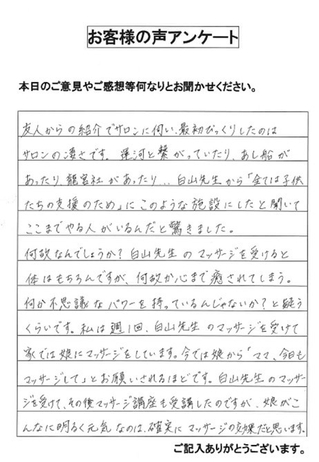 お客様の声アンケート
本日のご意見やご感想等何なりとお聞かせください。
友人からの紹介でサロンに伺い、最初びっくりしたのは
サロンの凄さです。運河と繋がっていたり、あし船が
あったり、龍宮社があったり...白山先生から「全ては子供
たちの支援のため」にこのような施設にしたと聞いて
ここまでやる人がいるんだと驚きました。
何故なんでしょうか?白山先生のマッサージを受けると
体はもちろんですが、何故か心まで癒されてしまう。
何か不思議なパワーを持っているんじゃないか?と疑う
くらいです。私は週1回、白山先生のマッサージを受けて
家では娘にマッサージをしています。今では娘から「ママ、今日も
マッサージして」とお願いされるほどです。白山先生のマッサージ
を受けて、その後マッサージ講座も受講したのですが、娘がこ
んなに明るく元気なのは、確実にマッサージの効果だと思います。
ご記入ありがとうございます。